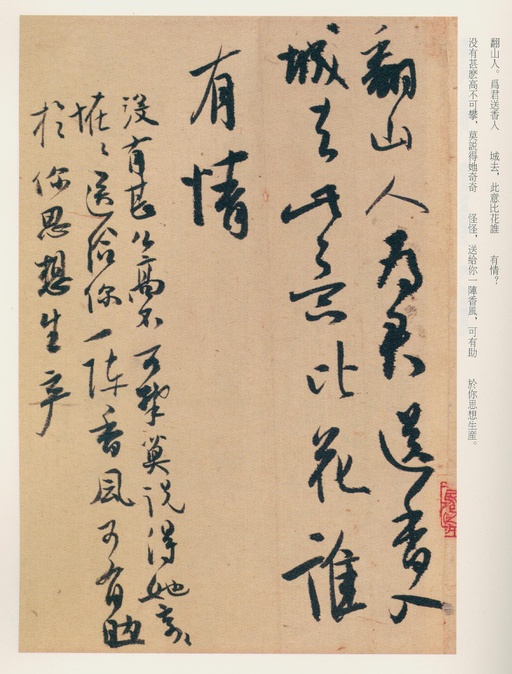 翻山人。爲君送香入　城去，此意比花誰　有情？
没有甚麽高不可攀，莫説得她奇奇　怪怪，送給你一陣香風，可有助　於你思想生産。
翻山人為君送香入
城去此意比花誰
有情
没有甚么高不可攀莫説得她奇〻
怪〻送给你一陣香風可有助
於你思想生产